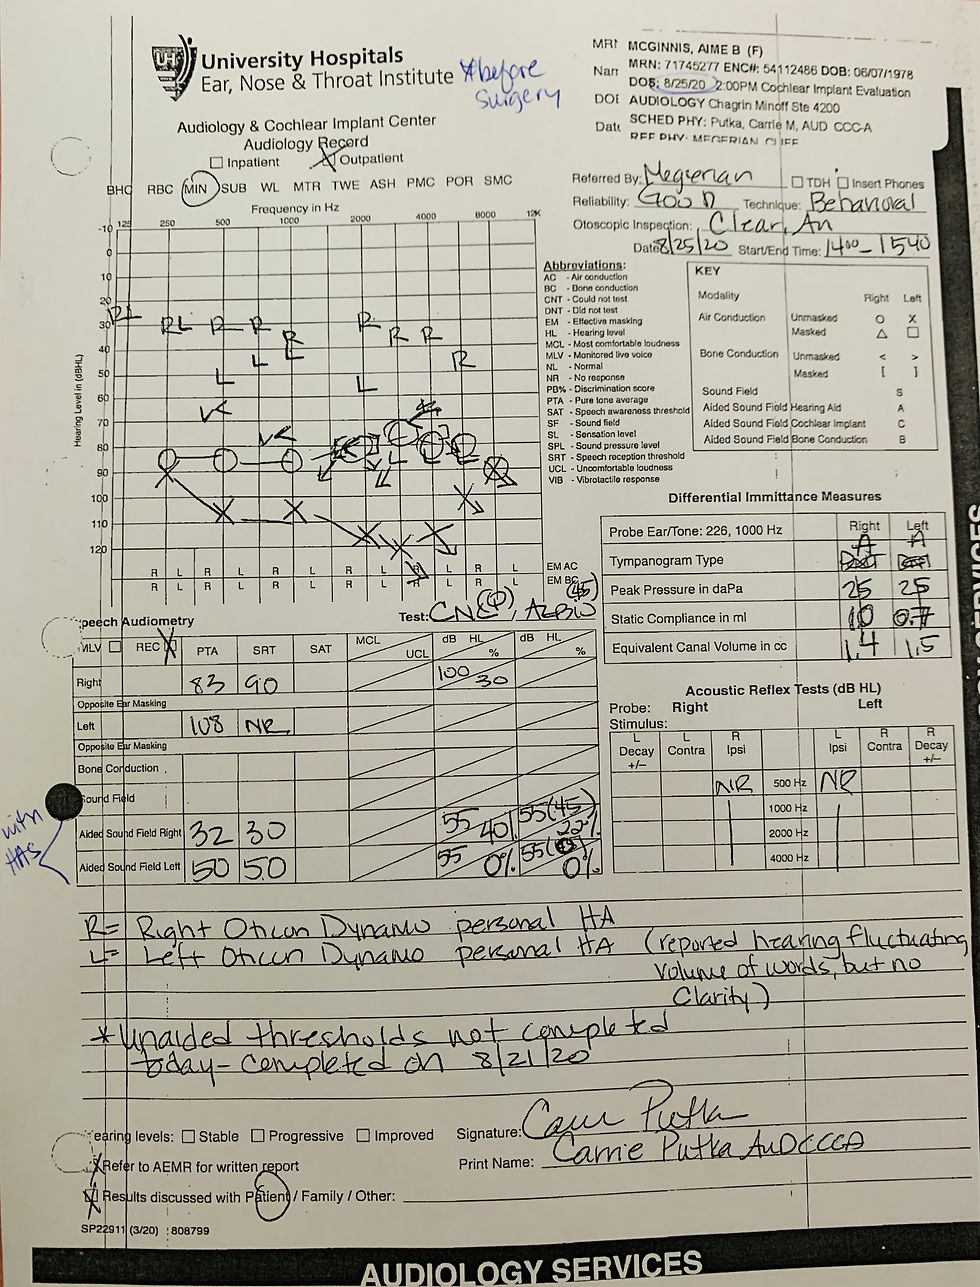 University Hospitals
Ear, Nose & Throat Institute
*before
surgery
MCGINNIS, AIME B (F)
MRN: 71745277 ENC#: 54112486 DOB: 06/07/1978
DOS: 8/25/20 2:00PM Cochlear Implant Evaluation
AUDIOLOGY Chagrin Minoff Ste 4200
SCHED PHY: Putka, Carrie M, AUD CCC-A
REF PHY: MEGERIAN, CLIFF
Audiology & Cochlear Implant Center
Audiology Record
Inpatient Outpatient
BHC RBC MIN SUB WL MTR TWE ASH PMC POR SMC
Referred By: Megerian TDH Insert Phones
Reliability: GOOD Technique: Behavioral
Otoscopic Inspection: Clear, Au
Date 8/25/20 Start/End Time: 1400-1540
Frequency in Hz
125 250 500 1000 2000 4000 8000 12K
Hearing Level in (dBHL)
-10
0
10
20
30
40
50
60
70
80
90
100
110
120
R L R L R L R L R L R L EM AC
R L R L R L R L R L R L EM BC
Abbreviations:
AC - Air conduction
BC - Bone conduction
CNT - Could not test
DNT - Did not test
EM - Effective masking
HL - Hearing level
MCL - Most comfortable loudness
MLV - Monitored live voice
NL - Normal
NR - No response
PB% - Discrimination score
PTA - Pure tone average
SAT - Speech awareness threshold
SF - Sound field
SL - Sensation level
SPL - Sound pressure level
SRT - Speech reception threshold
UCL - Uncomfortable loudness
VIB - Vibrotactile response
KEY
Modality Right Left
Air Conduction Unmasked O X
Masked △ □
Bone Conduction Unmasked < >
Masked [ ]
Sound Field S
Aided Sound Field Hearing Aid A
Aided Sound Field Cochlear Implant C
Aided Sound Field Bone Conduction B
Differential Immittance Measures
Probe Ear/Tone: 226, 1000 Hz Right Left
Tympanogram Type A A
Peak Pressure in daPa 25 25
Static Compliance in ml 1.0 0.7
Equivalent Canal Volume in cc 1.4 1.5
Speech Audiometry
Test:
MLV REC PTA SRT SAT MCL UCL dB HL % dB HL %
Right 83 90 100 30
Opposite Ear Masking
Left 108 NR
Opposite Ear Masking
Bone Conduction
Sound Field
Aided Sound Field Right 32 30 55 40% 55(45) 22%
Aided Sound Field Left 50 50 55 0% 55 0%
with
HAs
Acoustic Reflex Tests (dB HL)
Probe: Right Left
Stimulus:
L Decay +/- L Contra R Ipsi L Ipsi R Contra R Decay +/-
NR 500 Hz NR
1000 Hz
2000 Hz
4000 Hz
R= Right Oticon Dynamo personal HA
L= Left Oticon Dynamo personal HA (reported hearing fluctuating
volume of words, but no
clarity)
*Unaided thresholds not completed
today- completed on 8/21/20
Hearing levels: Stable Progressive Improved
Signature: Carrie Putka
Refer to AEMR for written report
Print Name: Carrie Putka AuD CCCA
Results discussed with Patient / Family / Other:
SP22911 (3/20) 808799
AUDIOLOGY SERVICES